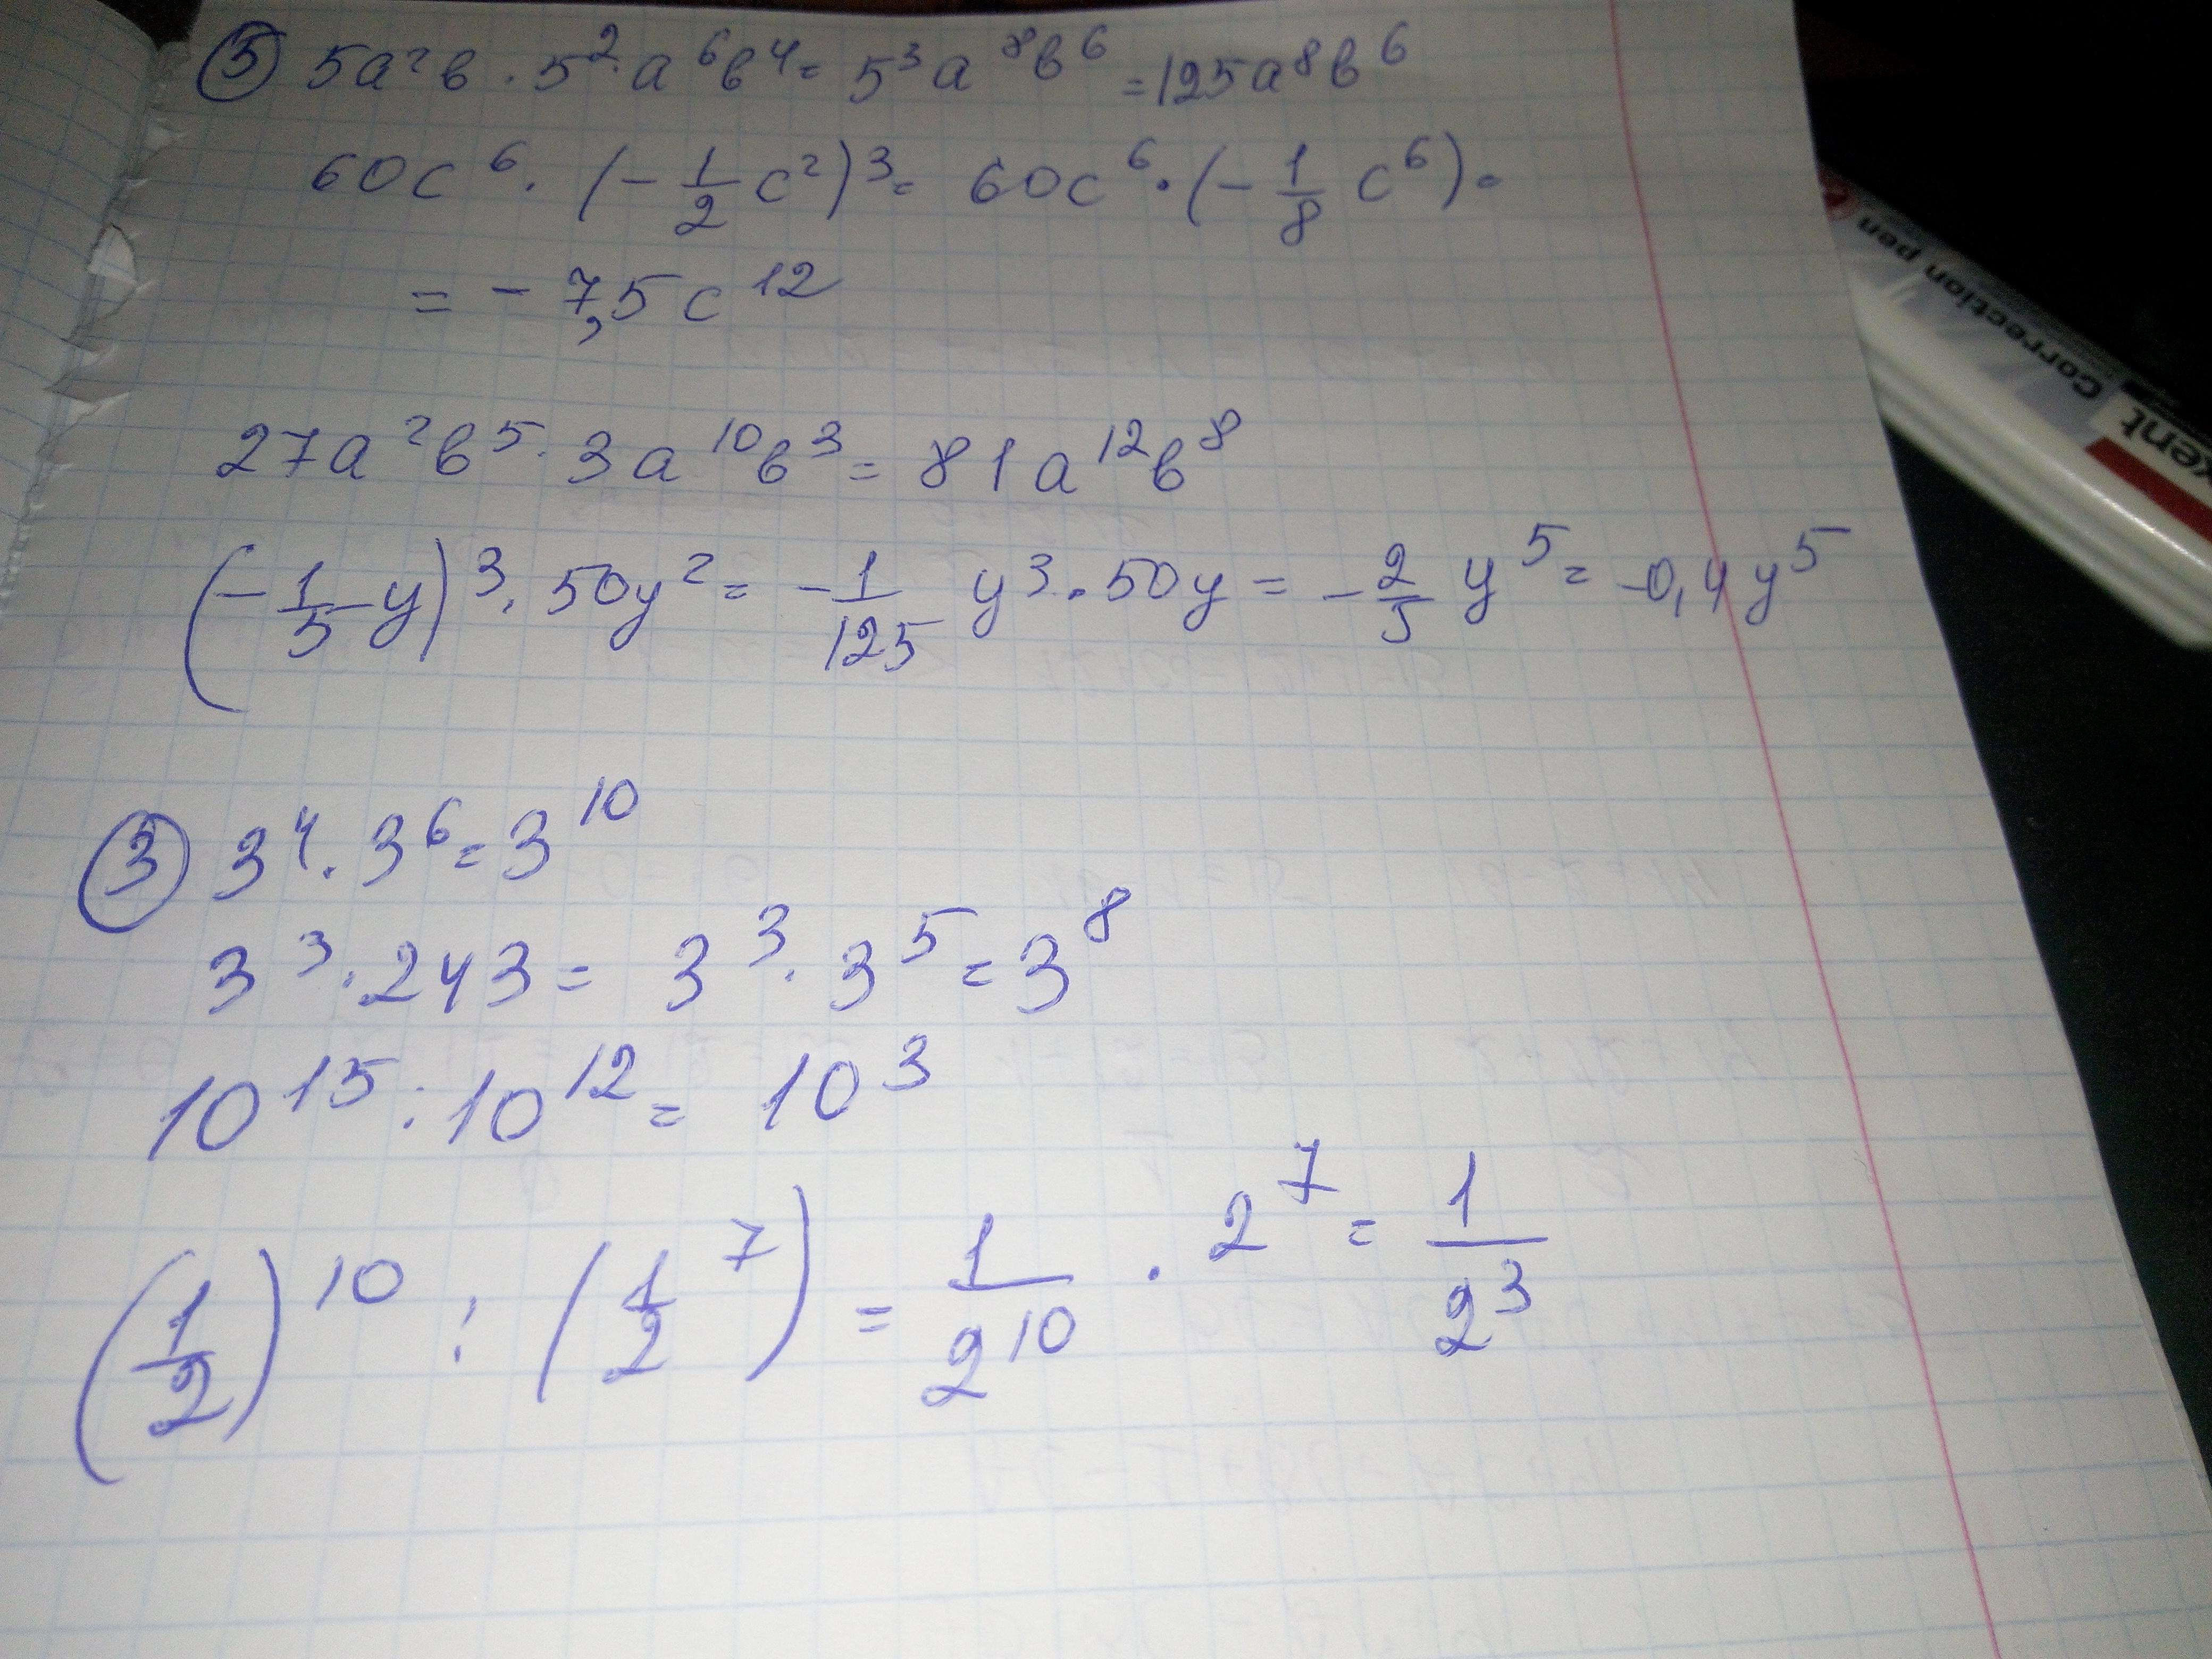 ⑤ 5a²b · 5² · a⁶b⁴ = 5³a⁸b⁶ = 125a⁸b⁶
60c⁶ · (-1/2 c²)³ = 60c⁶ · (-1/8 c⁶) =
= -7,5c¹²
27a²b⁵ · 3a¹⁰b³ = 81a¹²b⁸
(-1/5 y)³ · 50y² = -1/125 y³ · 50y = -2/5 y⁵ = -0,4y⁵
③ 3⁴ · 3⁶ = 3¹⁰
3³ · 243 = 3³ · 3⁵ = 3⁸
10¹⁵ : 10¹² = 10³
(1/2)¹⁰ : (1/2⁷) = 1/2¹⁰ · 2⁷ = 1/2³
Correction pen